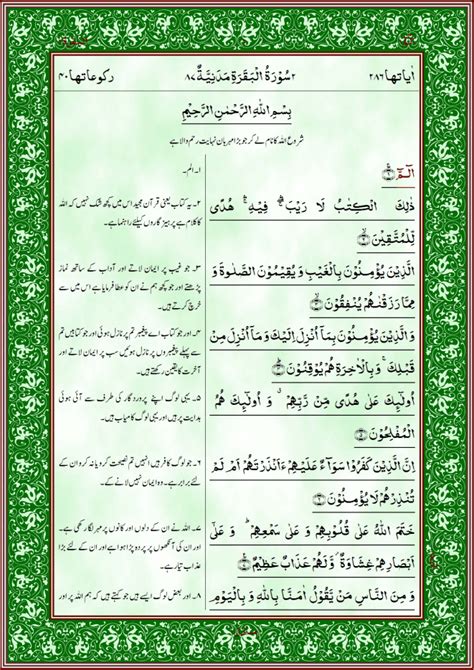 اٰیاتها ۲۸۶ ۲ سُوْرَةُ الْبَقَرَةِ مَدَنِيَّةٌ ۸۷ رکوعاتها ۴۰
بِسْمِ اللّٰهِ الرَّحْمٰنِ الرَّحِيْمِ
شروع اللہ کا نام لے کر جو بڑا مہربان نہایت رحم والا ہے
الٓمّٓ ۝۱
ذٰلِكَ الْكِتٰبُ لَا رَيْبَ ۛ فِيْهِ ۛ هُدًى
لِّلْمُتَّقِيْنَ ۝۲
الَّذِيْنَ يُؤْمِنُوْنَ بِالْغَيْبِ وَ يُقِيْمُوْنَ الصَّلٰوةَ وَ
مِمَّا رَزَقْنٰهُمْ يُنْفِقُوْنَ ۝۳
وَ الَّذِيْنَ يُؤْمِنُوْنَ بِمَاۤ اُنْزِلَ اِلَيْكَ وَ مَاۤ اُنْزِلَ مِنْ
قَبْلِكَ ۚ وَ بِالْاٰخِرَةِ هُمْ يُوْقِنُوْنَ ۝۴
اُولٰٓئِكَ عَلٰى هُدًى مِّنْ رَّبِّهِمْ ۗ وَ اُولٰٓئِكَ هُمُ
الْمُفْلِحُوْنَ ۝۵
اِنَّ الَّذِيْنَ كَفَرُوْا سَوَآءٌ عَلَيْهِمْ ءَاَنْذَرْتَهُمْ اَمْ لَمْ
تُنْذِرْهُمْ لَا يُؤْمِنُوْنَ ۝۶
خَتَمَ اللّٰهُ عَلٰى قُلُوْبِهِمْ وَ عَلٰى سَمْعِهِمْ ؕ وَ عَلٰۤى
اَبْصَارِهِمْ غِشَاوَةٌ ۫ وَّ لَهُمْ عَذَابٌ عَظِيْمٌ ۝۷
وَ مِنَ النَّاسِ مَنْ يَّقُوْلُ اٰمَنَّا بِاللّٰهِ وَ بِالْيَوْمِ
۱۔ الم۔
۲۔ یہ کتاب یعنی قرآن مجید اس میں کچھ شک نہیں کہ اللہ
کا کلام ہے پرہیز گاروں کیلئے راہنما ہے۔
۳۔ جو غیب پر ایمان لاتے اور آداب کے ساتھ نماز
پڑھتے اور جو کچھ ہم نے ان کو عطا فرمایا ہے اس میں سے
خرچ کرتے ہیں۔
۴۔ اور جو کتاب اے پیغمبر تم پر نازل ہوئی اور جو کتابیں تم
سے پہلے پیغمبروں پر نازل ہوئیں سب پر ایمان لاتے اور
آخرت کا یقین رکھتے ہیں۔
۵۔ یہی لوگ اپنے پروردگار کی طرف سے آئی ہوئی
ہدایت پر ہیں اور یہی لوگ کامیاب ہیں۔
۶۔ جو لوگ کافر ہیں انہیں تم نصیحت کرو یا نہ کرو ان کے
لئے برابر ہے۔ وہ ایمان نہیں لانے کے۔
۷۔ اللہ نے ان کے دلوں اور کانوں پر مہر لگا رکھی ہے۔
اور ان کی آنکھوں پر پردہ پڑا ہوا ہے اور ان کے لئے بڑا
عذاب تیار ہے۔
۸۔ اور بعض لوگ ایسے ہیں جو کہتے ہیں کہ ہم اللہ پر اور